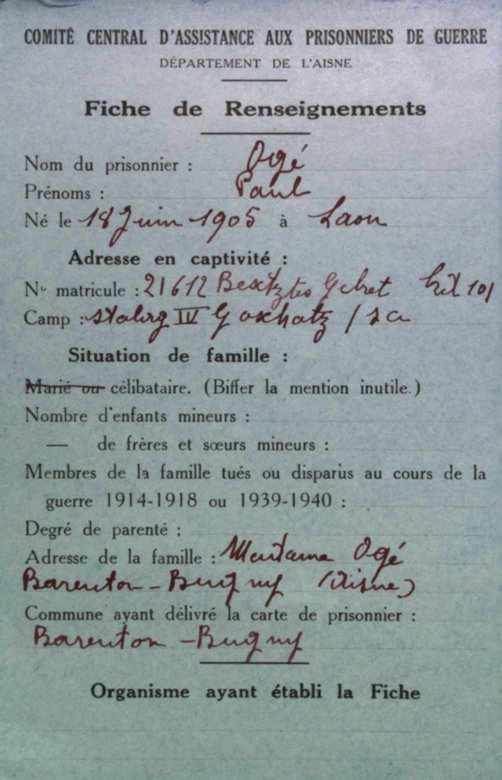 COMITÉ CENTRAL D'ASSISTANCE AUX PRISONNIERS DE GUERRE
DÉPARTEMENT DE L'AISNE
Fiche de Renseignements
Nom du prisonnier : Ogé
Prénoms : Paul
Né le 18 Juin 1905 à Laon
Adresse en captivité :
No matricule : 21612 Besetztes Gebiet
Camp : stalag IV G oschatz / sa
Situation de famille :
Marié ou célibataire. (Biffer la mention inutile.)
Nombre d'enfants mineurs :
— de frères et sœurs mineurs :
Membres de la famille tués ou disparus au cours de la
guerre 1914-1918 ou 1939-1940 :
Degré de parenté :
Adresse de la famille : Madame Ogé
Barenton-Bugny (Aisne)
Commune ayant délivré la carte de prisonnier :
Barenton-Bugny
Organisme ayant établi la Fiche